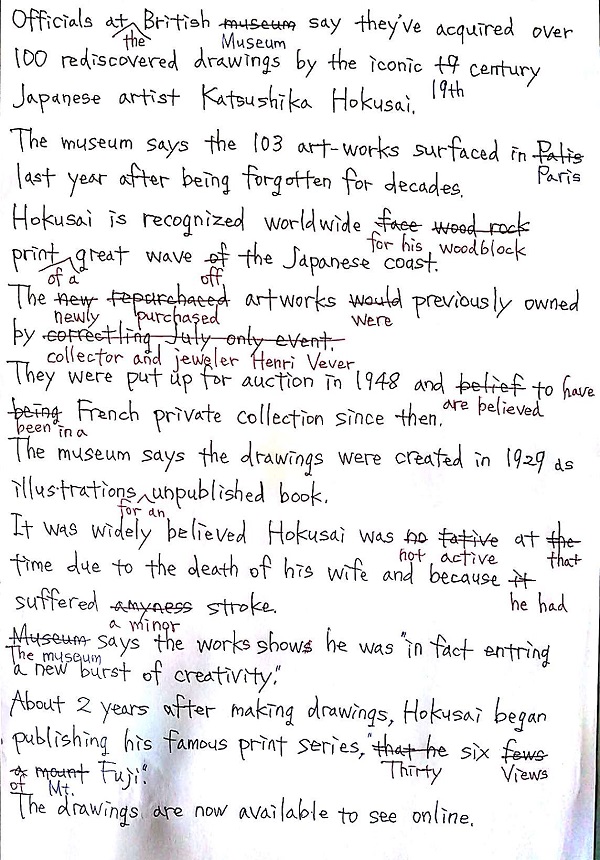 Officials at British museum say they've acquired over
the Museum
100 rediscovered drawings by the iconic 17 century
19th
Japanese artist Katsushika Hokusai.
The museum says the 103 art-works surfaced in Palis
Paris
last year after being forgotten for decades.
Hokusai is recognized worldwide face wood rock
for his woodblock
print great wave of the Japanese coast.
of a off
The new repurchaced artworks would previously owned
newly purchased were
by correctling July only event.
collector and jeweler Henri Vever
They were put up for auction in 1948 and belief to have
are believed
being French private collection since then.
been in a
The museum says the drawings were created in 1929 as
illustrations unpublished book.
for an
It was widely believed Hokusai was no tative at the
not active that
time due to the death of his wife and because it
he had
suffered amyness stroke.
a minor
Museum says the works shows he was "in fact entring
The museum
a new burst of creativity."
About 2 years after making drawings, Hokusai began
publishing his famous print series, "that he six fews
Thirty Views
mount Fuji."
of Mt.
The drawings are now available to see online.